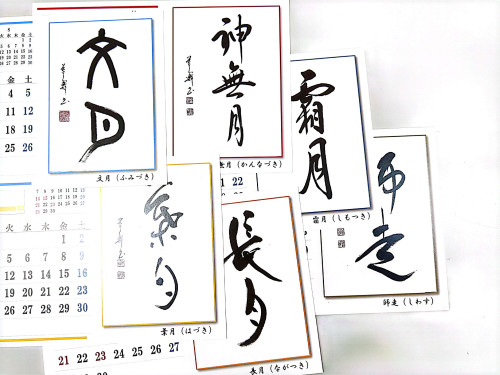 金 土
4 5
11 12
18 19
25 26
文月
文月（ふみづき）
神無月
無月（かんなづき）
22
霜月
霜月（しもつき）
師走
師走（しわす）
火 水 木 金 土
1 2
5 6 7 8 9
12 13 14 15 16
19 20 21 22 23
26 27 28 29 30
葉月
葉月（はづき）
長月
長月（ながつき）
21 22 23 24 25 26 27